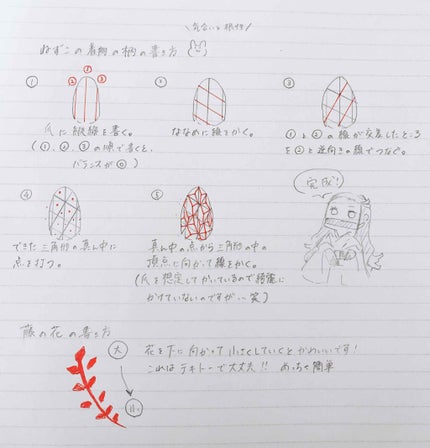 \気合いと根性/
ねずこの着物の柄の書き方
① ② ③
① ② ③
爪に縦線を書く。
(①,②,③の順で書くと、
バランスが◎)
ななめに線をかく。
①と②の線が交差したところ
を②と逆向きの線でつなぐ。
④ ⑤
できた三角形の真ん中に
点を打つ。
真ん中の点から三角形の中の
頂点に向かって線をかく。
(爪を想定してかいているので綺麗に
かけていないのですが…笑)
完成!
藤の花の書き方
大
小
花を下に向かって小さくしていくとかわいいです!
これはテキトーで大丈夫!! めっちゃ簡単